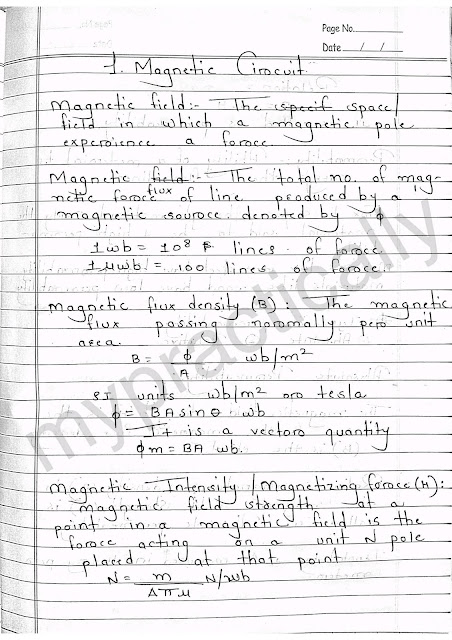 Page No.
Date / /
1. Magnetic Cirocuit
Magnetic field:- The specif space/
field in which a magnetic pole
experoience a foroce.
Magnetic field:- The total no. of mag-
netic foroce flux of line produced by a
magnetic souroce. denoted by ϕ
1wb = 10⁸ lines of foroce.
1μwb = 100 lines of foroce.
Magnetic flux density (B): The magnetic
flux passing noromally pero unit
area.
B = ϕ/A wb/m²
SI units wb/m² oro tesla
ϕ = BA sinθ wb
It is a vectoro quantity
ϕm = BA wb.
Magnetic Intensity/Magnetizing foroce(H):
magnetic field strength at a
point in a magnetic field is the
foroce acting on a unit N pole
placed at that point
N = m/4πμ N/wb
mypractically